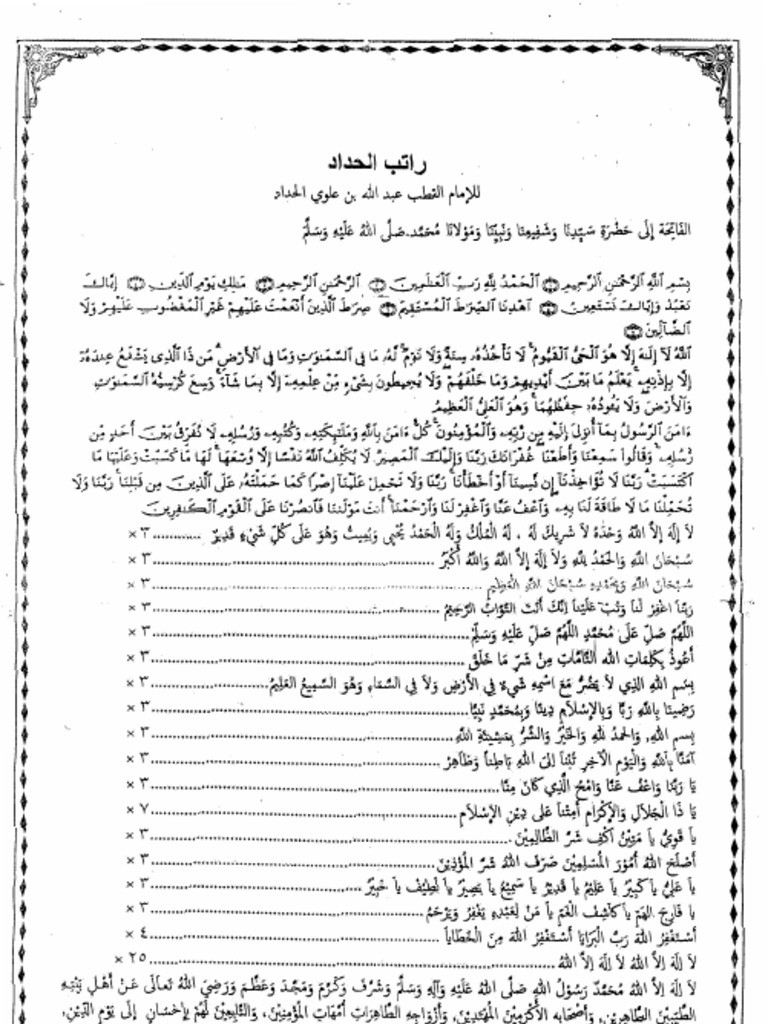 راتب الحداد
للإمام القطب عبد الله بن علوي الحداد
الفَاتِحَة إِلَى حَضْرَةِ سَيِّدِنَا وَشَفِيعِنَا وَنَبِيِّنَا وَمَوْلَانَا مُحَمَّد صَلَّى اللهُ عَلَيْهِ وَسَلَّمْ
بِسْمِ ٱللَّهِ ٱلرَّحْمَٰنِ ٱلرَّحِيمِ ۝ ٱلْحَمْدُ لِلَّهِ رَبِّ ٱلْعَٰلَمِينَ ۝ ٱلرَّحْمَٰنِ ٱلرَّحِيمِ ۝ مَٰلِكِ يَوْمِ ٱلدِّينِ ۝ إِيَّاكَ
نَعْبُدُ وَإِيَّاكَ نَسْتَعِينُ ۝ ٱهْدِنَا ٱلصِّرَٰطَ ٱلْمُسْتَقِيمَ ۝ صِرَٰطَ ٱلَّذِينَ أَنْعَمْتَ عَلَيْهِمْ غَيْرِ ٱلْمَغْضُوبِ عَلَيْهِمْ وَلَا
ٱلضَّآلِّينَ ۝
ٱللَّهُ لَآ إِلَٰهَ إِلَّا هُوَ ٱلْحَىُّ ٱلْقَيُّومُ ۚ لَا تَأْخُذُهُۥ سِنَةٌ وَلَا نَوْمٌ ۚ لَّهُۥ مَا فِى ٱلسَّمَٰوَٰتِ وَمَا فِى ٱلْأَرْضِ ۗ مَن ذَا ٱلَّذِى يَشْفَعُ عِندَهُۥٓ
إِلَّا بِإِذْنِهِۦ ۚ يَعْلَمُ مَا بَيْنَ أَيْدِيهِمْ وَمَا خَلْفَهُمْ ۖ وَلَا يُحِيطُونَ بِشَىْءٍ مِّنْ عِلْمِهِۦٓ إِلَّا بِمَا شَآءَ ۚ وَسِعَ كُرْسِيُّهُ ٱلسَّمَٰوَٰتِ
وَٱلْأَرْضَ ۖ وَلَا يَـُٔودُهُۥ حِفْظُهُمَا ۚ وَهُوَ ٱلْعَلِىُّ ٱلْعَظِيمُ
ءَامَنَ ٱلرَّسُولُ بِمَآ أُنزِلَ إِلَيْهِ مِن رَّبِّهِۦ وَٱلْمُؤْمِنُونَ ۚ كُلٌّ ءَامَنَ بِٱللَّهِ وَمَلَٰٓئِكَتِهِۦ وَكُتُبِهِۦ وَرُسُلِهِۦ لَا نُفَرِّقُ بَيْنَ أَحَدٍ مِّن
رُّسُلِهِۦ ۚ وَقَالُوا۟ سَمِعْنَا وَأَطَعْنَا ۖ غُفْرَانَكَ رَبَّنَا وَإِلَيْكَ ٱلْمَصِيرُ لَا يُكَلِّفُ ٱللَّهُ نَفْسًا إِلَّا وُسْعَهَا ۚ لَهَا مَا كَسَبَتْ وَعَلَيْهَا مَا
ٱكْتَسَبَتْ ۗ رَبَّنَا لَا تُؤَاخِذْنَآ إِن نَّسِينَآ أَوْ أَخْطَأْنَا ۚ رَبَّنَا وَلَا تَحْمِلْ عَلَيْنَآ إِصْرًا كَمَا حَمَلْتَهُۥ عَلَى ٱلَّذِينَ مِن قَبْلِنَا ۚ رَبَّنَا وَلَا
تُحَمِّلْنَا مَا لَا طَاقَةَ لَنَا بِهِۦ ۖ وَٱعْفُ عَنَّا وَٱغْفِرْ لَنَا وَٱرْحَمْنَآ ۚ أَنتَ مَوْلَىٰنَا فَٱنصُرْنَا عَلَى ٱلْقَوْمِ ٱلْكَٰفِرِينَ
لاَ إِلَهَ إِلاَّ اللهُ وَحْدَهُ لاَ شَرِيكَ لَهُ ، لَهُ الْمُلْكُ وَلَهُ الْحَمْدُ يُحْيِى وَيُمِيتُ وَهُوَ عَلَى كُلِّ شَيْءٍ قَدِيْرٌ ............ ٣ ×
سُبْحَانَ اللهِ وَالحَمْدُ لِلَّهِ وَلاَ إِلَهَ إِلاَّ اللهُ وَاللهُ أَكْبَرُ ............ ٣ ×
سُبْحَانَ اللهِ وَبِحَمْدِهِ سُبْحَانَ اللهِ الْعَظِيمِ ............ ٣ ×
رَبَّنَا اغْفِرْ لَنَا وَتُبْ عَلَيْنَا إِنَّكَ أَنْتَ التَّوَّابُ الرَّحِيمُ ............ ٣ ×
اللَّهُمَّ صَلِّ عَلَى مُحَمَّدٍ اللَّهُمَّ صَلِّ عَلَيْهِ وَسَلِّمْ ............ ٣ ×
أَعُوذُ بِكَلِمَاتِ الله التَّامَّاتِ مِنْ شَرِّ مَا خَلَقَ ............ ٣ ×
بِسْمِ اللهِ الذِي لاَ يَضُرُّ مَعَ اسْمِهِ شَيْءٌ فِي الأَرْضِ وَلاَ فِي السَّمَاءِ وَهُوَ السَّمِيعُ العَلِيمُ ............ ٣ ×
رَضِينَا بِاللهِ رَبًّا وَبِالإِسْلاَمِ دِينًا وَبِمُحَمَّدٍ نَبِيًّا ............ ٣ ×
بِسمِ اللهِ، وَالحمدُ للهِ وَالخَيْرُ وَالشَّرُّ بِمَشِيئَةِ اللهِ ............ ٣ ×
آمَنَّا بِاللهِ وَالْيَوْمِ الآخِرِ تُبْنَا إلى اللهِ بَاطِناً وَظَاهِرْ ............ ٣ ×
يَا رَبَّنَا وَاعْفُ عَنَّا وَامْحُ الَّذِي كَانَ مِنَّا ............ ٣ ×
يَا ذَا الْجَلاَلِ وَالإِكْرَامِ أَمِتْنَا عَلى دِيْنِ الإِسْلاَمِ ............ ٧ ×
يا قَوِيُّ يا مَتِيْنُ اكْفِ شَرَّ الظَّالِمِيْنَ ............ ٣ ×
أَصْلَحَ اللهُ أُمُوْرَ الْمُسْلِمِيْنَ صَرَفَ اللهُ شَرَّ الْمُؤْذِيْنَ ............ ٣ ×
يا عَلِيُّ يا كَبِيْرُ يا عَلِيْمُ يا قَدِيْرُ يا سَمِيْعُ يا بَصِيْرُ يا لَطِيْفُ يا خَبِيْرُ ............ ٣ ×
يا فَارِجَ الهَمّ يا كَاشِفَ الغَمِّ يا مَنْ لِعَبْدِهِ يَغْفِرُ وَيَرْحَمُ ............ ٣ ×
أَسْتَغْفِرُ اللهَ رَبَّ الْبَرَايَا أَسْتَغْفِرُ اللهَ مِنَ الْخَطَايَا ............ ٤ ×
لاَ إِلَهَ إِلاَّ اللهُ لاَ إِلَهَ إِلاَّ اللهُ ............ ٢٥ ×
لاَ إِلَهَ إِلاَّ اللهُ مُحَمَّدٌ رَسُوْلُ اللهِ صَلَّى اللهُ عَلَيْهِ وَآلِهِ وَسَلَّمَ وَشَرَّفَ وَكَرَّمَ وَمَجَّدَ وَعَظَّمَ وَرَضِيَ اللهُ تَعَالَى عَنْ أَهْلِ بَيْتِهِ
الطَّيِّبِيْنَ الطَّاهِرِيْنَ، وَأَصْحَابِهِ الأَكْرَمِيْنَ الْمُهْتَدِيْنَ، وَأَزْوَاجِهِ الطَّاهِرَاتِ أُمَّهَاتِ الْمُؤْمِنِيْنَ، وَالتَّابِعِيْنَ لَهُمْ بِإِحْسَانٍ إِلَى يَوْمِ الدِّيْنِ،